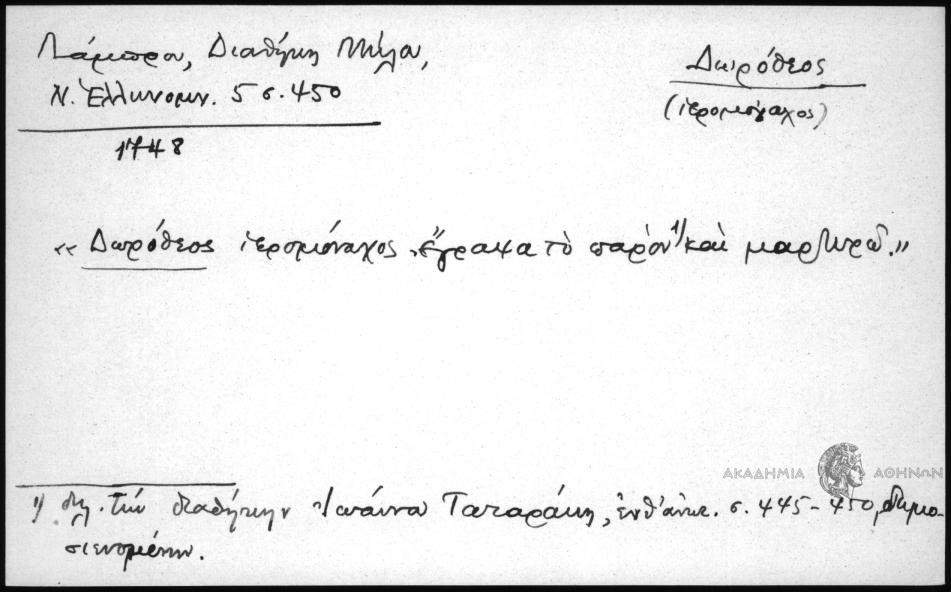 Λάμπρου, Διαθήκη Μήλου,
Ν. Ἑλληνομν. 5 σ. 450
1748
Δωρόθεος
(ἱερομόναχος)
« Δωρόθεος ἱερομόναχος ἔγραψα τὸ παρὸν 1) καὶ μαρτυρῶ. »
ΑΚΑΔΗΜΙΑ ΑΘΗΝΩΝ
1) δηλ. τὴν διαθήκην Ἰωάννου Ταταράκη, ἐνθ' ἀνωτ. σ. 445-450, δημο-
σιευομένην.